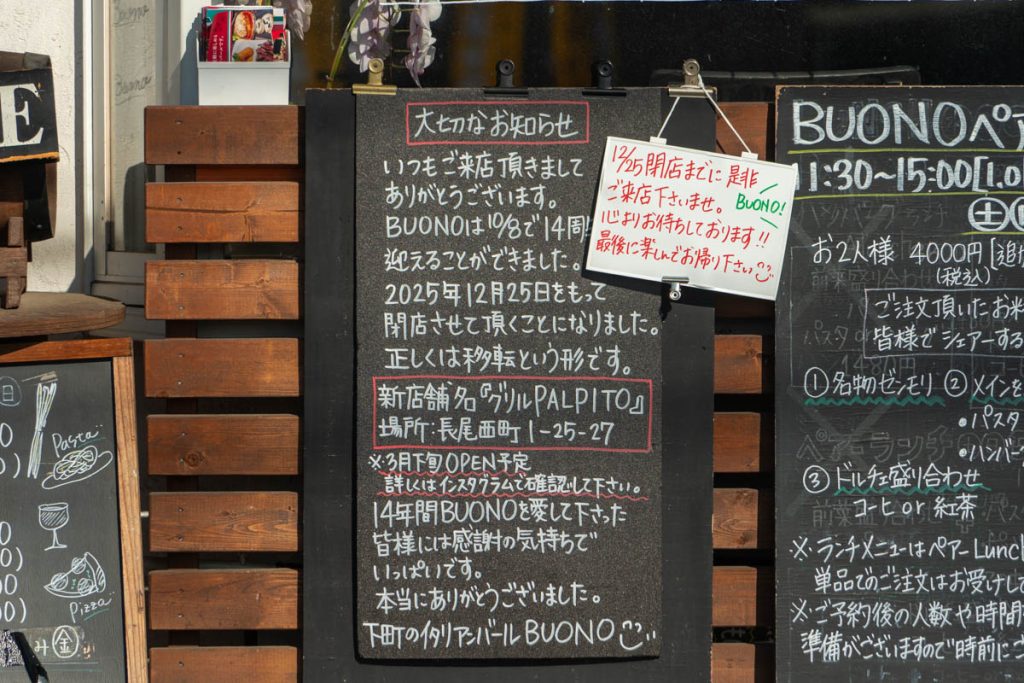 E
Pasta
Pizza
み ㊎
大切なお知らせ
いつもご来店頂きまして
ありがとうございます。
BUONOは10/8で14周
迎えることができました。
2025年12月25日をもって
閉店させて頂くことになりました。
正しくは移転という形です。
新店舗名『グリルPALPITO』
場所:長尾西町1-25-27
※3月下旬OPEN予定
詳しくはインスタグラムで確認して下さい。
14年間BUONOを愛して下さった
皆様には感謝の気持ちで
いっぱいです。
本当にありがとうございました。
下町のイタリアンバールBUONO
12/25閉店までに是非
ご来店下さいませ。
BUONO!
心よりお待ちしております!!
最後に楽しんでお帰り下さい
BUONOペア
11:30~15:00[L.O
㊏
お2人様 4000円[追加
(税込)
ご注文頂いたお料
皆様でシェアーする
①名物のゼンモリ ②メインを
・パスタ
・ハンバー
③ドルチェ盛り合わせ
コーヒ or 紅茶
※ランチメニューはペアーLunch
単品でのご注文はお受けして
※ご予約後の人数や時間
準備がございますので時前にご